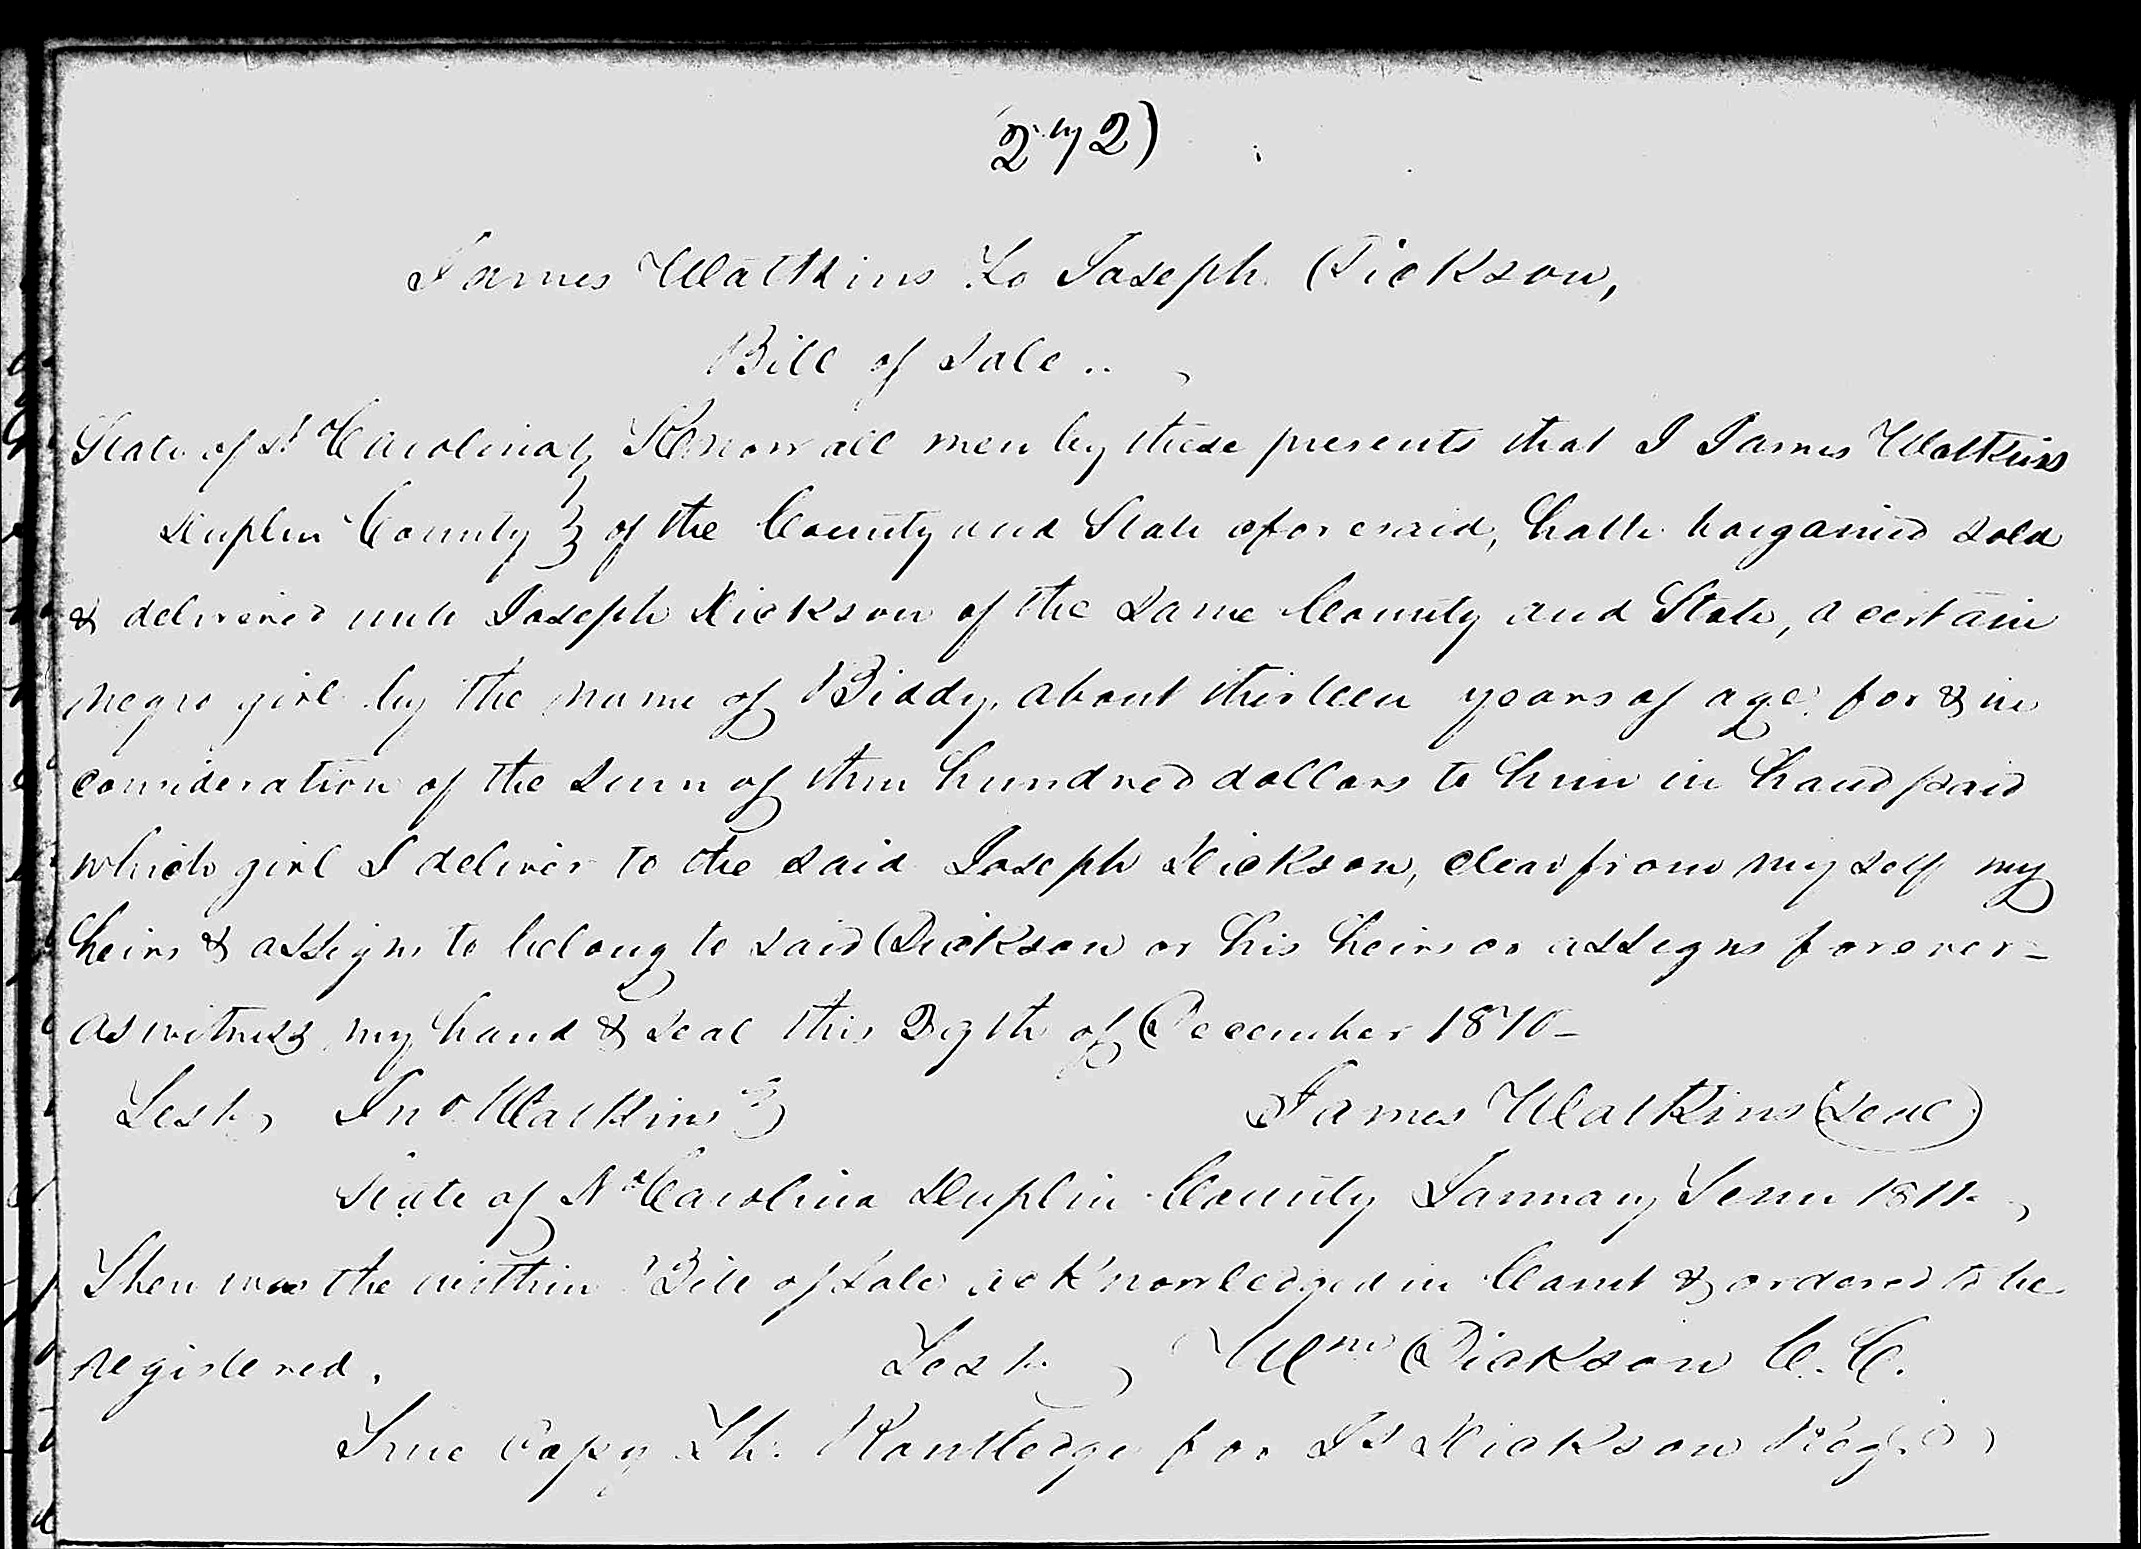 272)
James Watkins To Joseph Dickson,
Bill of Sale ..
State of N. Carolina } Know all men by these presents that I James Watkins
Duplin County } of the County and State aforesaid, hath bargained sold
& delivered unto Joseph Dickson of the same County and State, a certain
negro girl by the name of Biddy, about thirteen years of age for & in
consideration of the sum of three hundred dollars to him in hand paid
which girl I deliver to the said Joseph Dickson, clear from my self my
heirs & assigns to belong to said Dickson or his heirs or assigns forever -
as witness my hand & seal this of December 1810 -
Test, Jno Watkins } James Watkins (Seal)
State of No Carolina Duplin County January Term 1811.
Then was the within Bill of Sale acknowledged in Court & ordered to be
registered. Test, Wm Dickson C. C.
True Copy Th. Routledge for Js Dickson Reg.